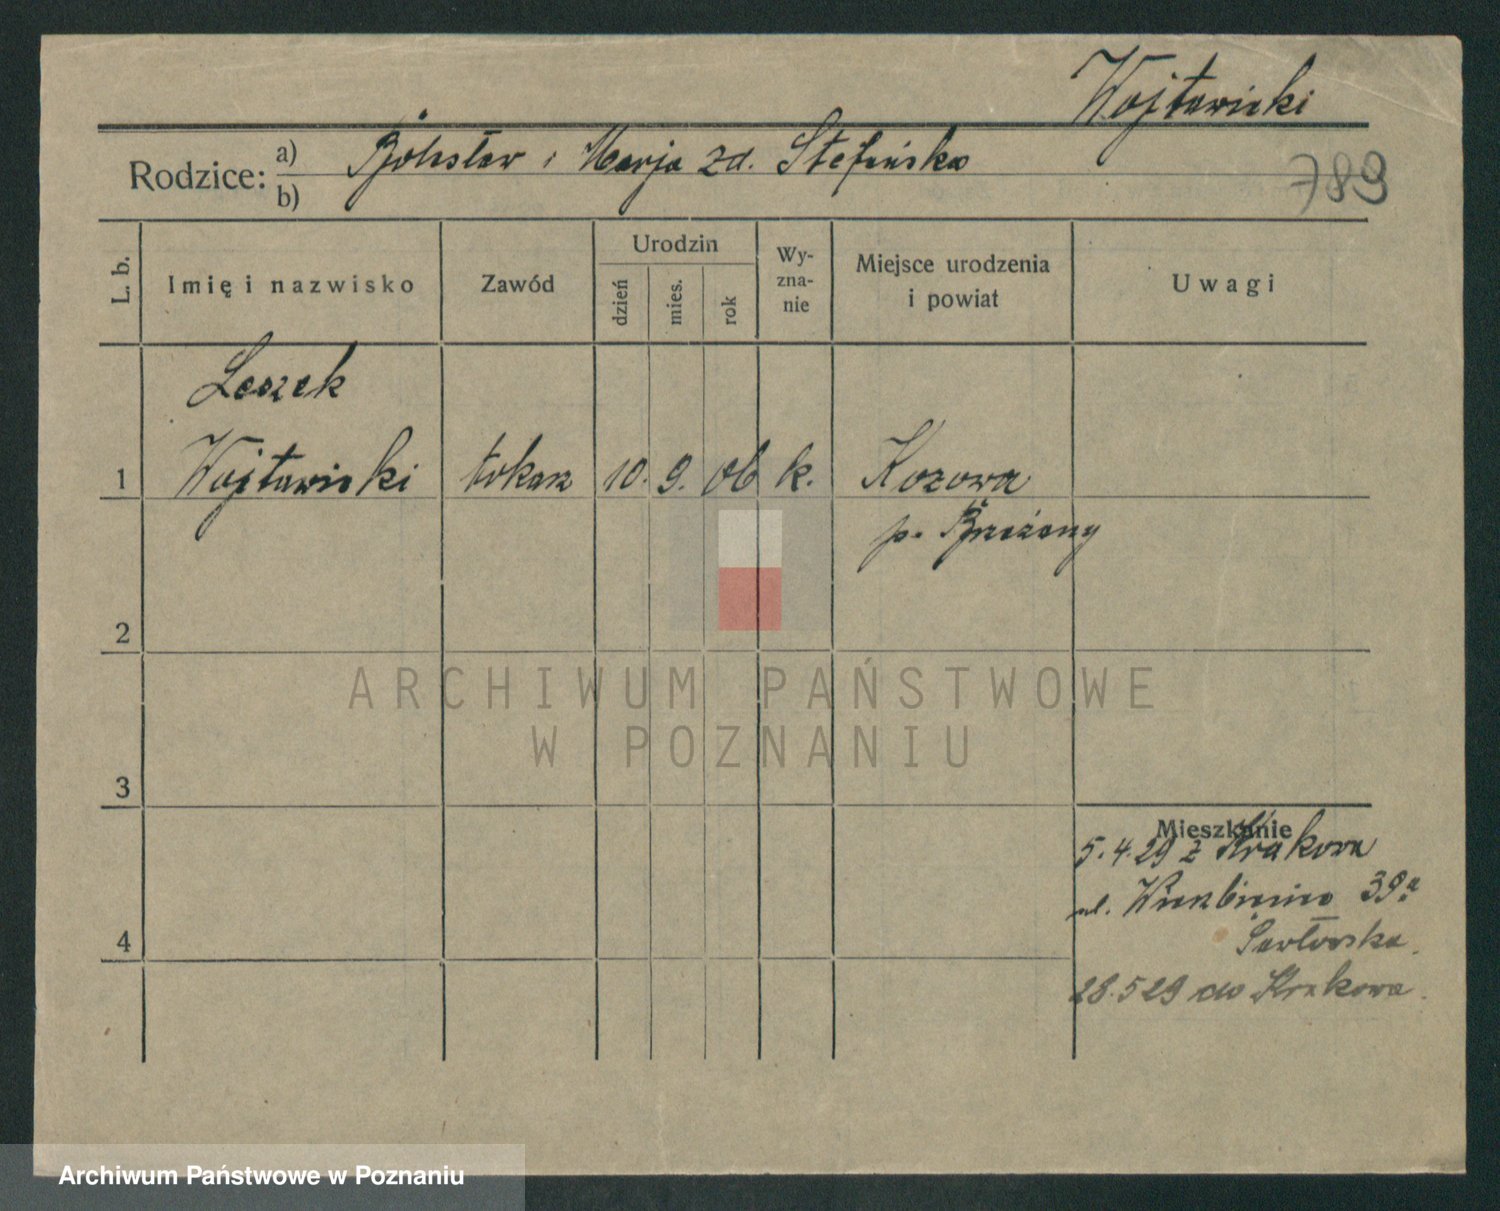 Wojtawicki
Rodzice: a) Bolesław i Marja zd. Stefińska
b)
789
L. b.
Imię i nazwisko
Zawód
Urodzin
dzień
mies.
rok
Wy-
zna-
nie
Miejsce urodzenia
i powiat
Uwagi
Leszek
1 Wojtawicki tokarz 10. 9. 06 k. Kozowa
p. Brzeżany
2
ARCHIWUM PAŃSTWOWE
W POZNANIU
3
Mieszkanie
5.4.29 z Krakowa
ul. 39a
4
28.5 29 do Krakowa.
Archiwum Państwowe w Poznaniu